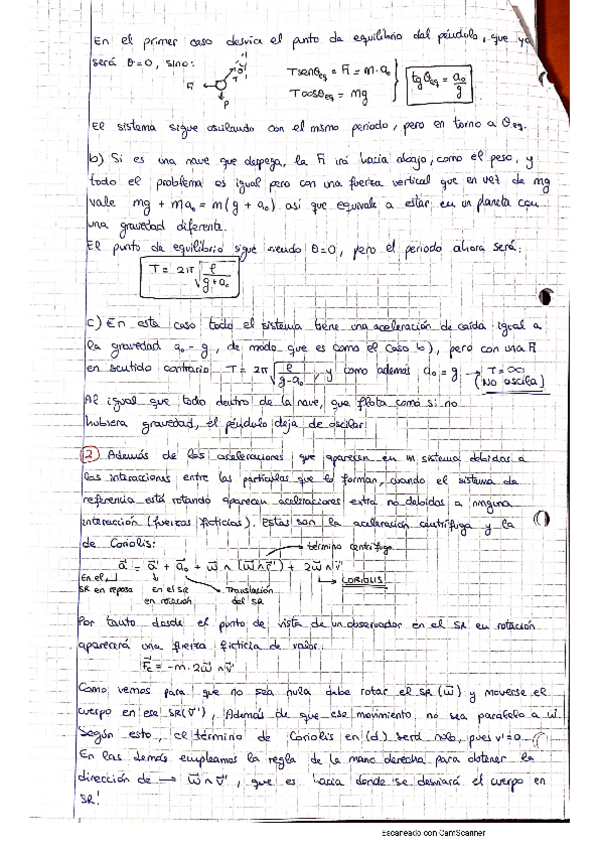 En el primer caso desvía el punto de equilibrio del péndulo, que ya
será θ=0, sino:
T senθeq = Fi = m·a₀
T cosθeq = mg
tgθeq = a₀/g
Fi
P
El sistema sigue oscilando con el mismo periodo, pero en torno a θeq.
b) Si es una nave que despega, la Fi irá hacia abajo, como el peso, y
todo el problema es igual pero con una fuerza vertical que en vez de mg
vale mg + ma₀ = m(g + a₀) así que equivale a estar en un planeta con
una gravedad diferente.
El punto de equilibrio sigue siendo θ=0, pero el periodo ahora será:
T = 2π√(ℓ/(g+a₀))
c) En este caso todo el sistema tiene una aceleración de caída igual a
la gravedad a₀ = g, de modo que es como el caso b), pero con una Fi
en sentido contrario T = 2π√(ℓ/(g-a₀)), y como además a₀ = g → T = ∞
(No oscila)
Al igual que todo dentro de la nave, que flota como si no
hubiera gravedad, el péndulo deja de oscilar
2) Además de las aceleraciones que aparecen en un sistema debidas a
las interacciones entre las partículas que lo forman, cuando el sistema de
referencia está rotando aparecen aceleraciones extra no debidas a ninguna
interacción (fuerzas ficticias). Estas son la aceleración centrífuga y la
de Coriolis:
término centrífugo
a⃗ = a⃗' + a⃗₀ + ω⃗ ∧ (ω⃗ ∧ r⃗') + 2ω⃗ ∧ v⃗'
CORIOLIS
En el SR en reposo
en el SR en rotación
Translación del SR
Por tanto desde el punto de vista de un observador en el SR en rotación
aparecerá una fuerza ficticia de valor:
F⃗c = -m·2ω⃗ ∧ v⃗'
Como vemos para que no sea nula debe rotar el SR (ω⃗) y moverse el
cuerpo en ese SR (v⃗'), Además de que ese movimiento no sea paralelo a ω⃗.
Según esto, el término de Coriolis en (d) será nulo, pues v'=0.
En las demás empleamos la regla de la mano derecha para obtener la
dirección de → ω⃗ ∧ v⃗', que es hacia donde se desviará el cuerpo en
SR'
Escaneado con CamScanner